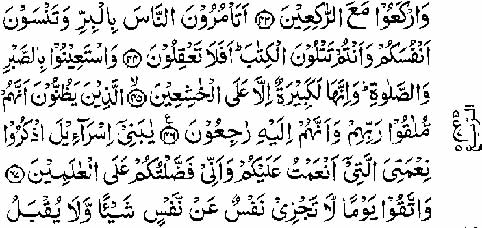 وَارْكَعُوْا مَعَ الرّٰكِعِيْنَ ﴿۴۳﴾ اَتَاْمُرُوْنَ النَّاسَ بِالْبِرِّ وَتَنْسَوْنَ
اَنْفُسَكُمْ وَاَنْتُمْ تَتْلُوْنَ الْكِتٰبَ ؕ اَفَلَا تَعْقِلُوْنَ ﴿۴۴﴾ وَاسْتَعِيْنُوْا بِالصَّبْرِ
وَالصَّلٰوةِ ؕ وَاِنَّهَا لَكَبِيْرَةٌ اِلَّا عَلَى الْخٰشِعِيْنَ ﴿۴۵﴾ الَّذِيْنَ يَظُنُّوْنَ اَنَّهُمْ
مُّلٰقُوْا رَبِّهِمْ وَاَنَّهُمْ اِلَيْهِ رٰجِعُوْنَ ﴿۴۶﴾ يٰبَنِيْۤ اِسْرَآءِيْلَ اذْكُرُوْا
نِعْمَتِيَ الَّتِيْۤ اَنْعَمْتُ عَلَيْكُمْ وَاَنِّيْ فَضَّلْتُكُمْ عَلَى الْعٰلَمِيْنَ ﴿۴۷﴾
وَاتَّقُوْا يَوْمًا لَّا تَجْزِيْ نَفْسٌ عَنْ نَّفْسٍ شَيْـًٔا وَّلَا يُقْبَلُ